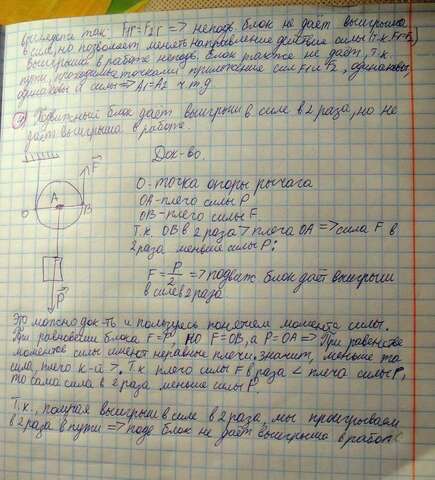 выглядеть так: F₁r=F₂r => неподв. блок не даёт выигрыша
в силе, но позволяет менять направление действие силы (т.к. F₁=F₂)
выигрыша в работе неподв. блок также не даёт, т.к.
пути, проходимые точками приложения сил F₁ и F₂, одинаковы,
одинаковы и силы => A₁=A₂ ч.т.д.
Подвижный блок даёт выигрыш в силе в 2 раза, но не
даёт выигрыша в работе.
Док-во.
F
A
O
B
P
O-точка опоры рычага
OA-плечо силы P
OB-плечо силы F
Т.к. OB в 2 раза > плеча OA => сила F в
2 раза меньше силы P;
F = P/2 => подвиж. блок даёт выигрыш
в силе в 2 раза
Это можно док-ть и пользуясь понятием момента силы.
При равновесии блока F=P, но F=OB, а P=OA => При равенстве
моментов силы имеют неравные плечи. значит, меньше та
сила, плечо к-й >. Т.к. плечо силы F в раза < плеча силы P,
то сама сила в 2 раза меньше силы P.
Т.к., получая выигрыш в силе в 2 раза, мы проигрываем
в 2 раза в пути => подв блок не даёт выигрыша в работе